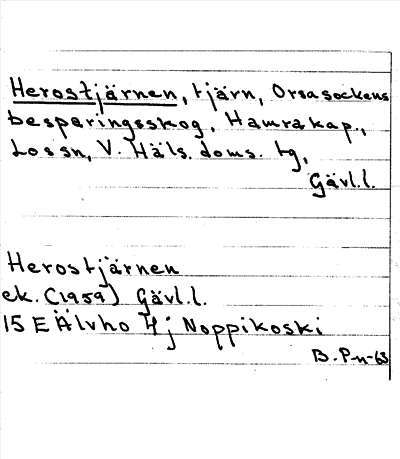 Herostjärnen, tjärn, Orsa sockens
besparingsskog, Hamra kap.,
Los sn, V. Häls. doms. tg,
Gävl.l.
Herostjärnen
ek. (1959) Gävl.l.
15 E Älvho 4 j Noppikoski
B. P-n-63